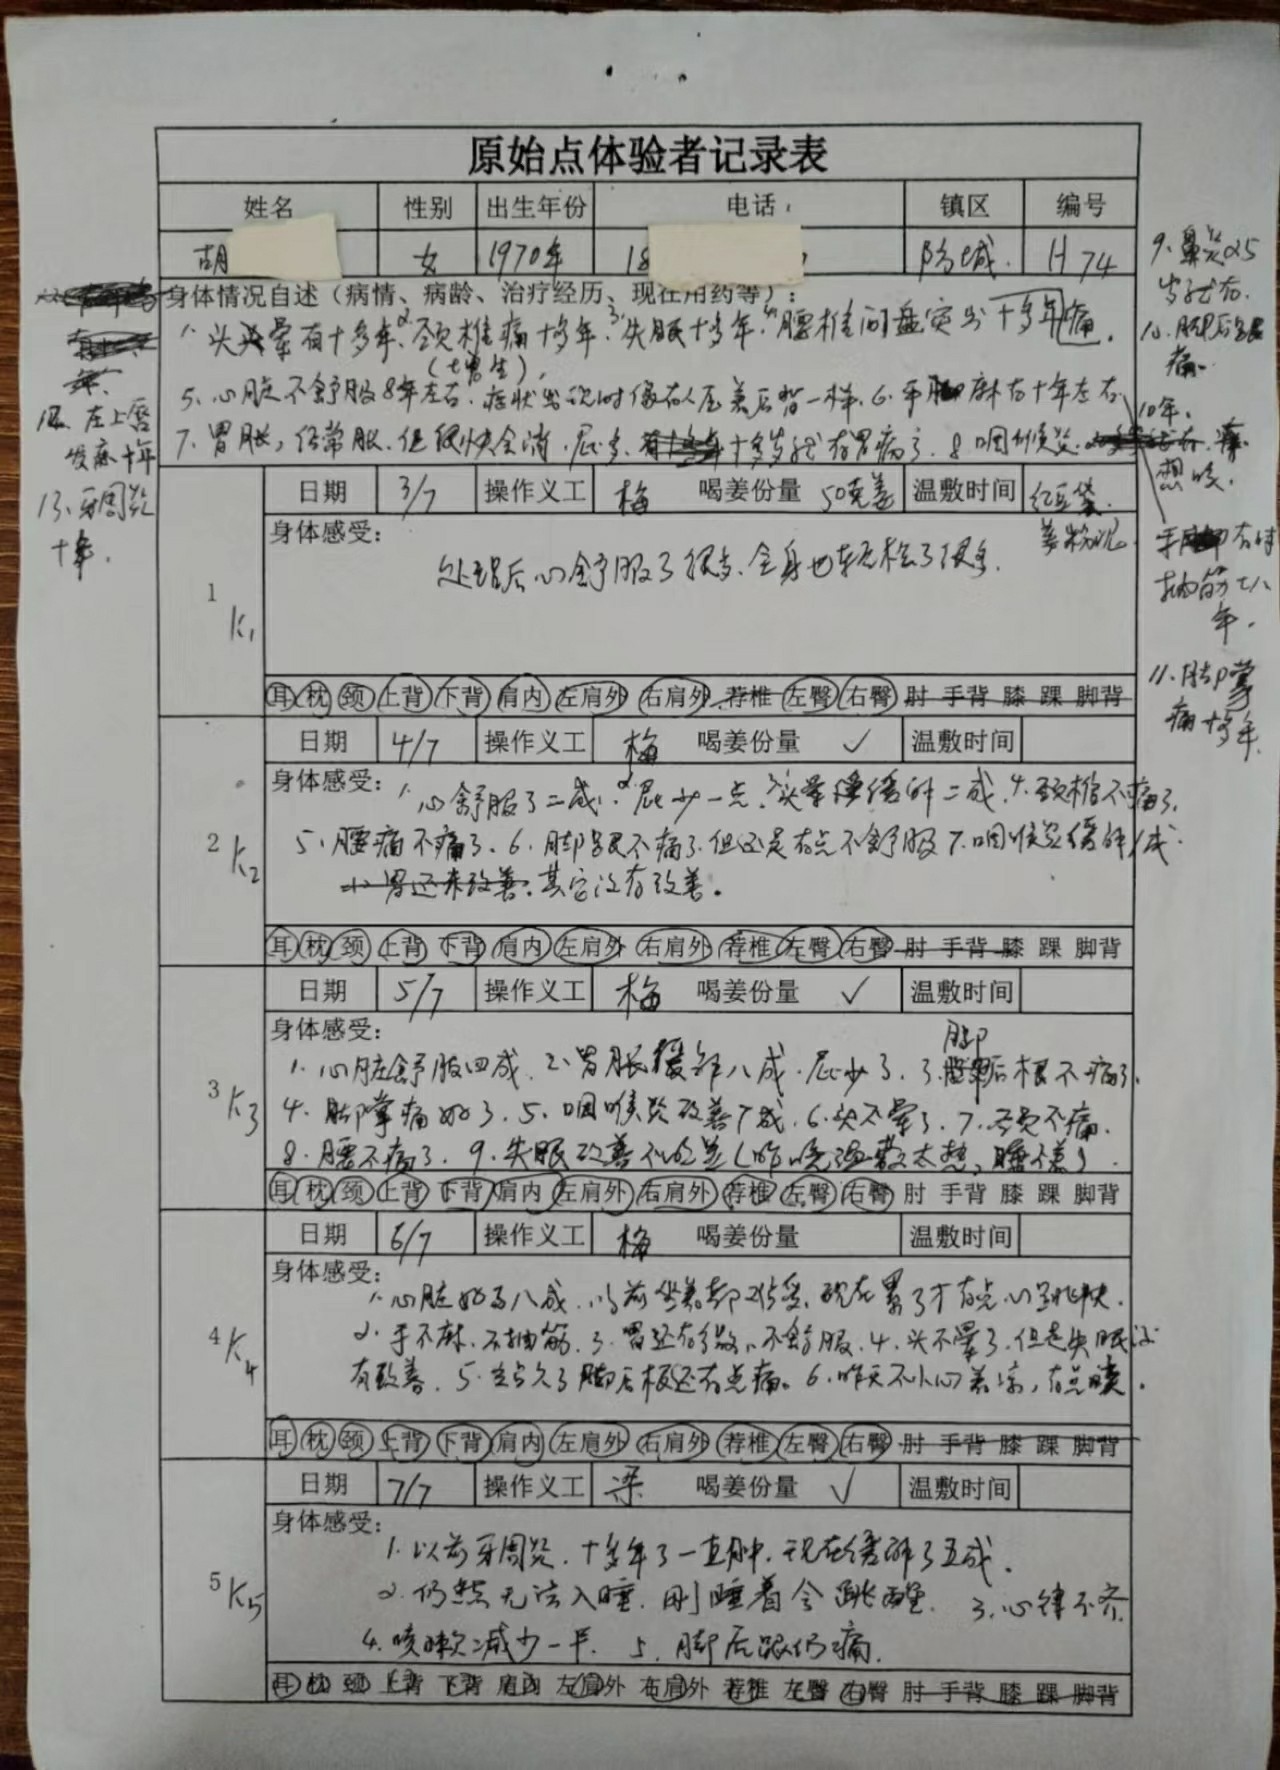 原始点体验者记录表
姓名 性别 出生年份 电话 镇区 编号
胡 女 1970年 18 防城. H 74
身体情况自述（病情、病龄、治疗经历、现在用药等）:
1. 头晕有十多年、2. 颈椎痛十多年、3. 失眠十多年、4. 腰椎间盘突出十多年痛.
5. 心脏不舒服8年左右. 症状出现时像有人压着后背一样. 6. 手麻有十年左右.
7. 胃胀, 经常胀. 但很快会消. 屁多. 十多岁就有胃病了. 8. 咽喉炎
10年. 痒
想咳.
9. 鼻炎25
岁就有.
10. 脚后跟
痛.
手有时
抽筋七八
年.
11. 脚掌
痛十多年
12. 左上唇
发麻十年
13. 牙周炎
十年.
1 K1
日期 3/7 操作义工 梅 喝姜份量 50克姜 温敷时间 红豆袋.
姜粉泥
身体感受:
处理后心舒服了很多、全身也轻松了很多.
耳 枕 颈 上背 下背 肩内 左肩外 右肩外 荐椎 左臀 右臀 肘 手背 膝 踝 脚背
2 K2
日期 4/7 操作义工 梅 喝姜份量 ✓ 温敷时间
身体感受:
1. 心舒服了二成. 2. 屁少一点. 3. 头晕缓解二成. 4. 颈椎不痛了.
5. 腰痛不痛了. 6. 脚跟不痛了. 但还是有点不舒服 7. 咽喉炎缓解1成.
胃还未改善. 其它没有改善。
耳 枕 颈 上背 下背 肩内 左肩外 右肩外 荐椎 左臀 右臀 肘 手背 膝 踝 脚背
3 K3
日期 5/7 操作义工 梅 喝姜份量 ✓ 温敷时间
身体感受:
1. 心脏舒服四成. 2. 胃胀缓解八成. 屁少了. 3. 脚后根不痛了.
4. 脚掌痛好了. 5. 咽喉炎改善7成. 6. 头不晕了. 7. 不痛.
8. 腰不痛了. 9. 失眠改善不明显(昨晚温敷太热, 睡不着).
耳 枕 颈 上背 下背 肩内 左肩外 右肩外 荐椎 左臀 右臀 肘 手背 膝 踝 脚背
4 K4
日期 6/7 操作义工 梅 喝姜份量 温敷时间
身体感受:
1. 心脏好了八成. 以前坐着都难受, 现在累了才有点心跳快.
2. 手不麻. 不抽筋. 3. 胃还有不舒服. 4. 头不晕了. 但是失眠没
有改善. 5. 走久了脚后根还有点痛。6. 昨天不小心着凉, 有点咳.
耳 枕 颈 上背 下背 肩内 左肩外 右肩外 荐椎 左臀 右臀 肘 手背 膝 踝 脚背
5 K5
日期 7/7 操作义工 梁 喝姜份量 ✓ 温敷时间
身体感受:
1. 以前牙周炎. 十多年了一直肿. 现在缓解了五成.
2. 仍然无法入睡. 刚睡着会跳醒. 3. 心律不齐.
4. 咳嗽减少一半. 5. 脚后跟仍痛.
耳 枕 颈 上背 下背 肩内 左肩外 右肩外 荐椎 左臀 右臀 肘 手背 膝 踝 脚背